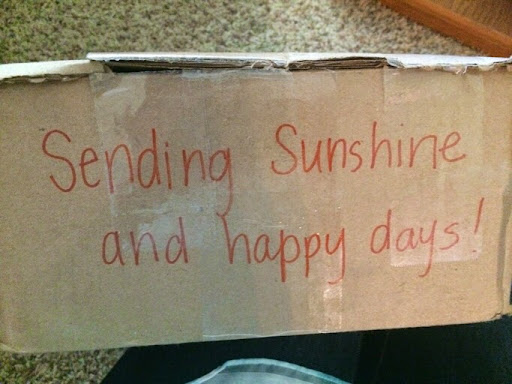 Sending Sunshine
and happy days!